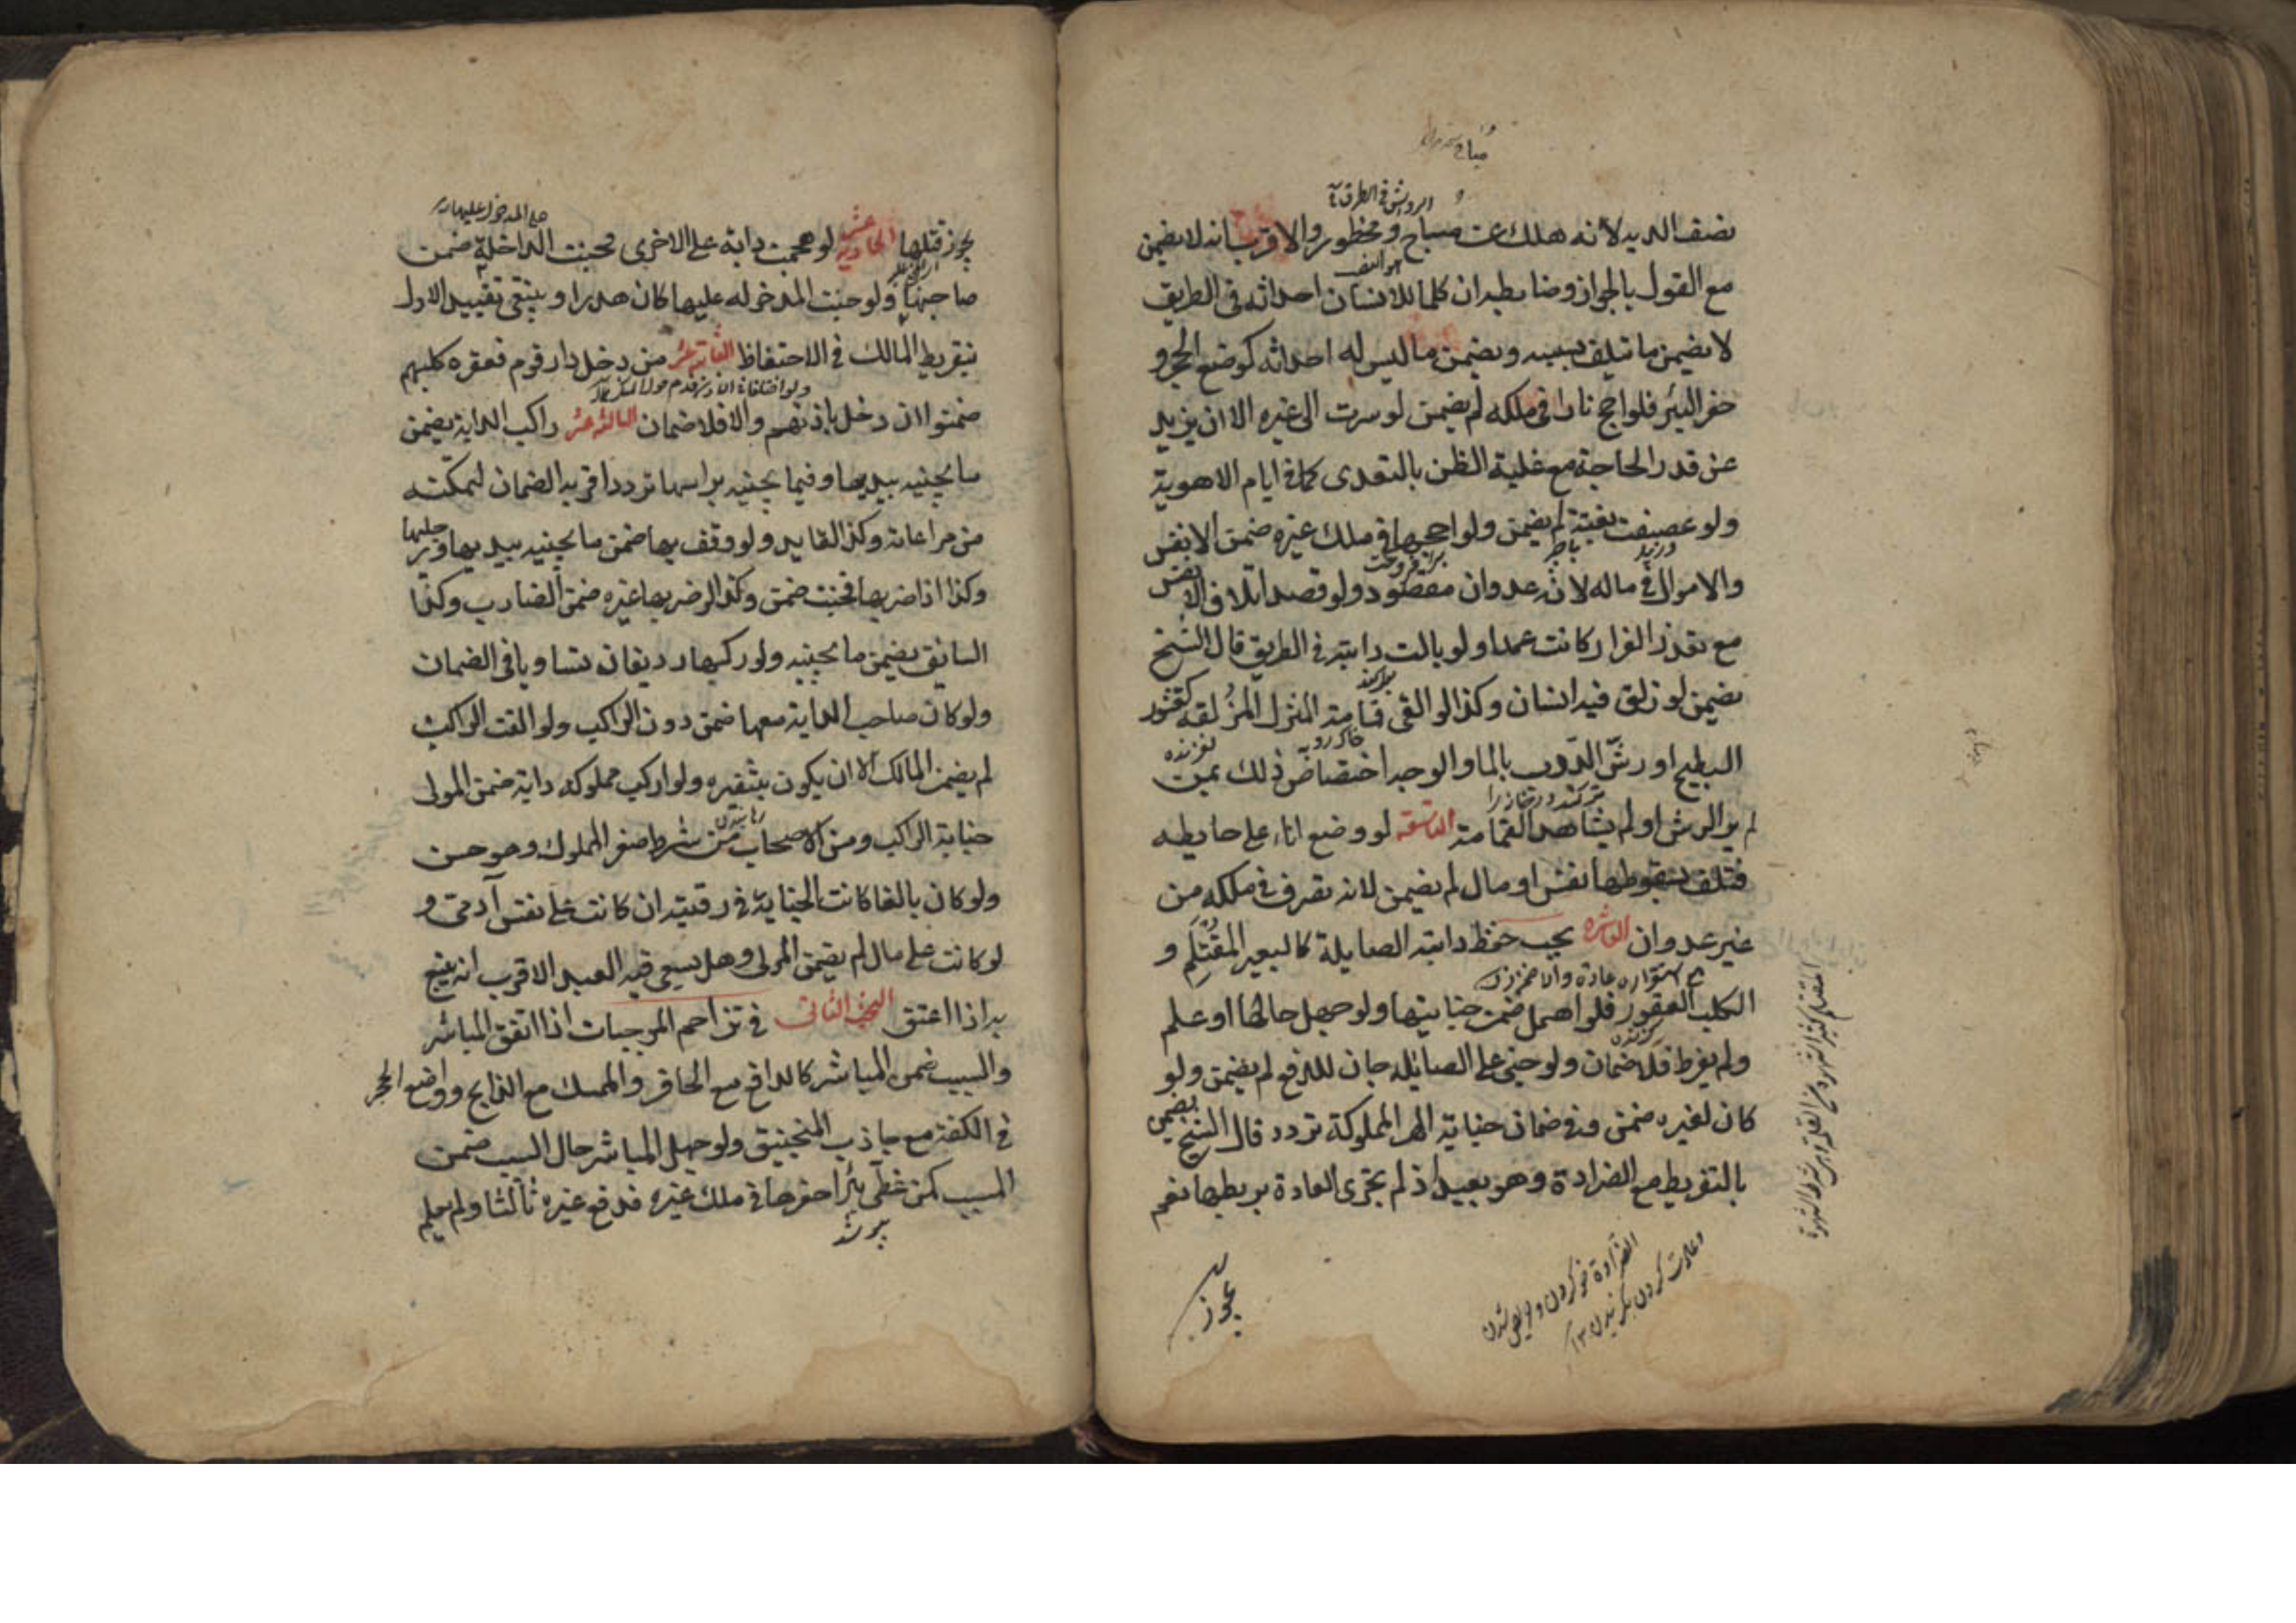 نصف الديه لأنه هلك عن مباح ومحظور والاقرب انه لا يضمن
مع القول بالجواز وضابطه ان كلما للانسان احداثه فى الطريق
لا يضمن ما تيلف بسببه ويضمن ما ليس له احداثه كوضع الحجر و
حفر البئر فلو اجج نارا فى ملكه لم يضمن لو سرت الى غيره الا ان يزيد
عن قدر الحاجة مع غلبة الظن بالتعدى كما فى ايام الاهوية
ولو عصفت بغتة لم يضمن ولو اججها فى ملك غيره ضمن الانفس
والاموال فى ماله لانه عدوان مقصود ولو قصد اتلاف الانفس
مع تعذر الفرار كانت عمدا ولو بالت دابته فى الطريق قال الشيخ
يضمن لو زلق فيه انسان وكذا لو القى قمامة المنزل المزلقه كقشور
البطيخ او رش الدرب بالماء والوجه اختصاص ذلك بمن
لم ير الرش او لم يشاهد القمامة التاسعة لو وضع اناء على حايطه
فتلف بسقوطها نفس او مال لم يضمن لانه تصرف فى ملكه من
غير عدوان العاشره يجب حفظ دابته الصايلة كالبعير المغتلم و
الكلب العقور فلو اهمل ضمن جنايتها ولو جهل حالها او علم
ولم يفرط فلا ضمان ولو جنى على الصايله جان للدفع لم يضمن ولو
كان لغيره ضمن وفى ضمان جناية الهر المملوكة تردد قال الشيخ يضمن
بالتفريط مع الضراوة وهو بعيد اذ لم تجرى العادة بربطها نعم
يجوز
يجوز قتلها الحادية عشر لو هجمت دابة على الاخرى فجنت الداخلة ضمن
صاحبها ولو جنت المدخوله عليها كان هدرا وينبغى تقييد الاول
بتفريط المالك فى الاحتفاظ الثانية عشر من دخل دار قوم فعقره كلبهم
ضمنوا ان دخل باذنهم والا فلا ضمان الثالثة عشر راكب الدابة يضمن
ما تجنيه بيديها وفيما تجنيه براسها تردد اقربه الضمان لتمكنه
من مراعاته وكذا القايد ولو وقف بها ضمن ما تجنيه بيديها ورجليها
وكذا اذا ضربها فجنت ضمن وكذا لو ضربها غيره ضمن الضارب وكذا
السايق يضمن ما تجنيه ولو ركبها رديفان تساويا فى الضمان
ولو كان صاحب الدابة معها ضمن دون الراكب ولو القت الراكب
لم يضمن المالك الا ان يكون بتنفيره ولو اركب مملوكه دابة ضمن المولى
جناية الراكب ومن الاصحاب من شرط صغر المملوك وهو حسن
ولو كان بالغا كانت الجناية فى رقبته ان كانت على نفس آدمى و
لو كانت على مال لم يضمن المولى وهل يسعى فيه العبد الاقرب انه يتبع
به اذا اعتق البحث الثانى فى تزاحم الموجبات اذا اتفق المباشر
والسبب ضمن المباشر كالدافع مع الحافر والممسك مع الذابح وواضع الحجر
فى الكفة مع جاذب المنجنيق ولو جهل المباشر حال السبب ضمن
المسبب كمن غطى بئرا حفرها فى ملك غيره فدفع غيره ثالثا ولم يعلم